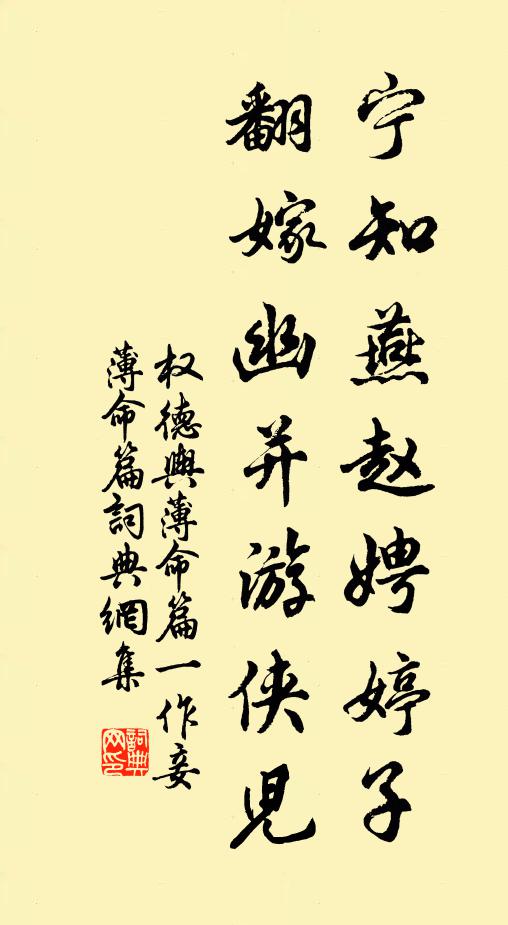 宁知燕赵娉婷子
翻嫁幽并游侠児
权德舆薄命篇一作妾
薄命篇詞典網集
詞典网印